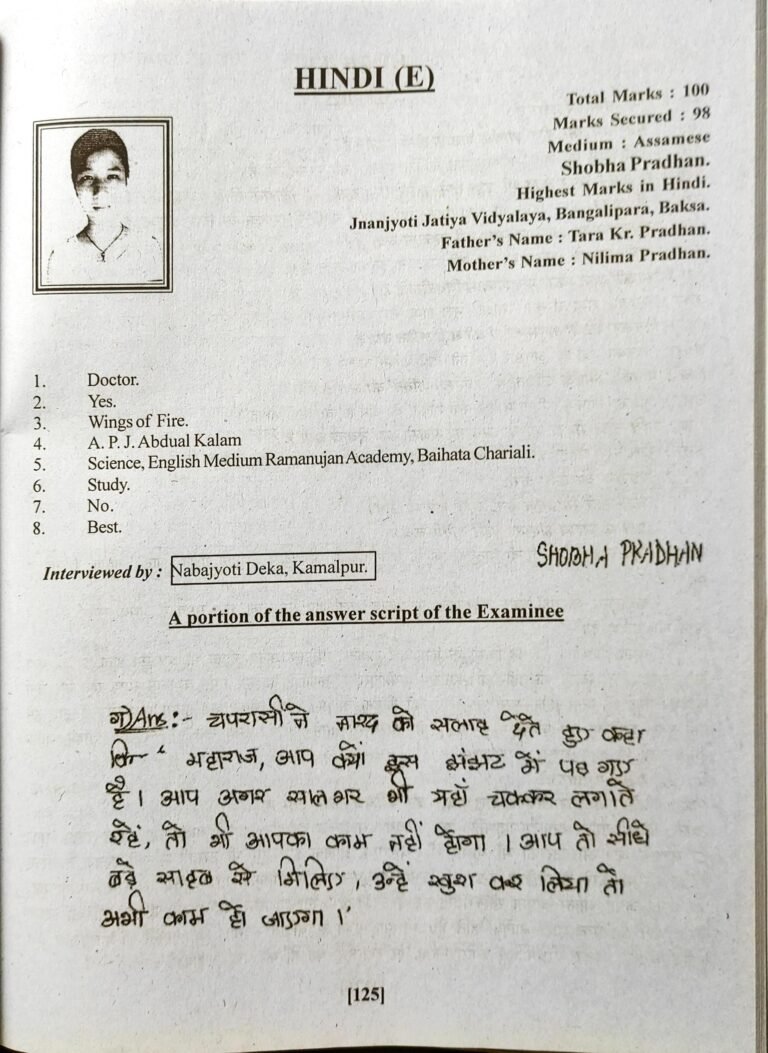 HINDI (E)
Total Marks : 100
Marks Secured : 98
Medium : Assamese
Shobha Pradhan.
Highest Marks in Hindi.
Jnanjyoti Jatiya Vidyalaya, Bangalipara, Baksa.
Father's Name : Tara Kr. Pradhan.
Mother's Name : Nilima Pradhan.
1. Doctor.
2. Yes.
3. Wings of Fire.
4. A. P. J. Abdual Kalam
5. Science, English Medium Ramanujan Academy, Baihata Chariali.
6. Study.
7. No.
8. Best.
SHOBHA PRADHAN
Interviewed by : Nabajyoti Deka, Kamalpur.
A portion of the answer script of the Examinee
ग) Ans :- चपरासी ने नारद को सलाह देते हुए कहा
कि “ महाराज, आप क्यों इस झंझट में पड़ गए
है। आप अगर साल भर भी यहाँ चक्कर लगाते
रहें, तो भी आपका काम नहीं होगा । आप तो सीधे
बड़े साहब से मिलिए, उन्हें खुश कर लिया तो
अभी काम हो जाएगा ।'
[125]